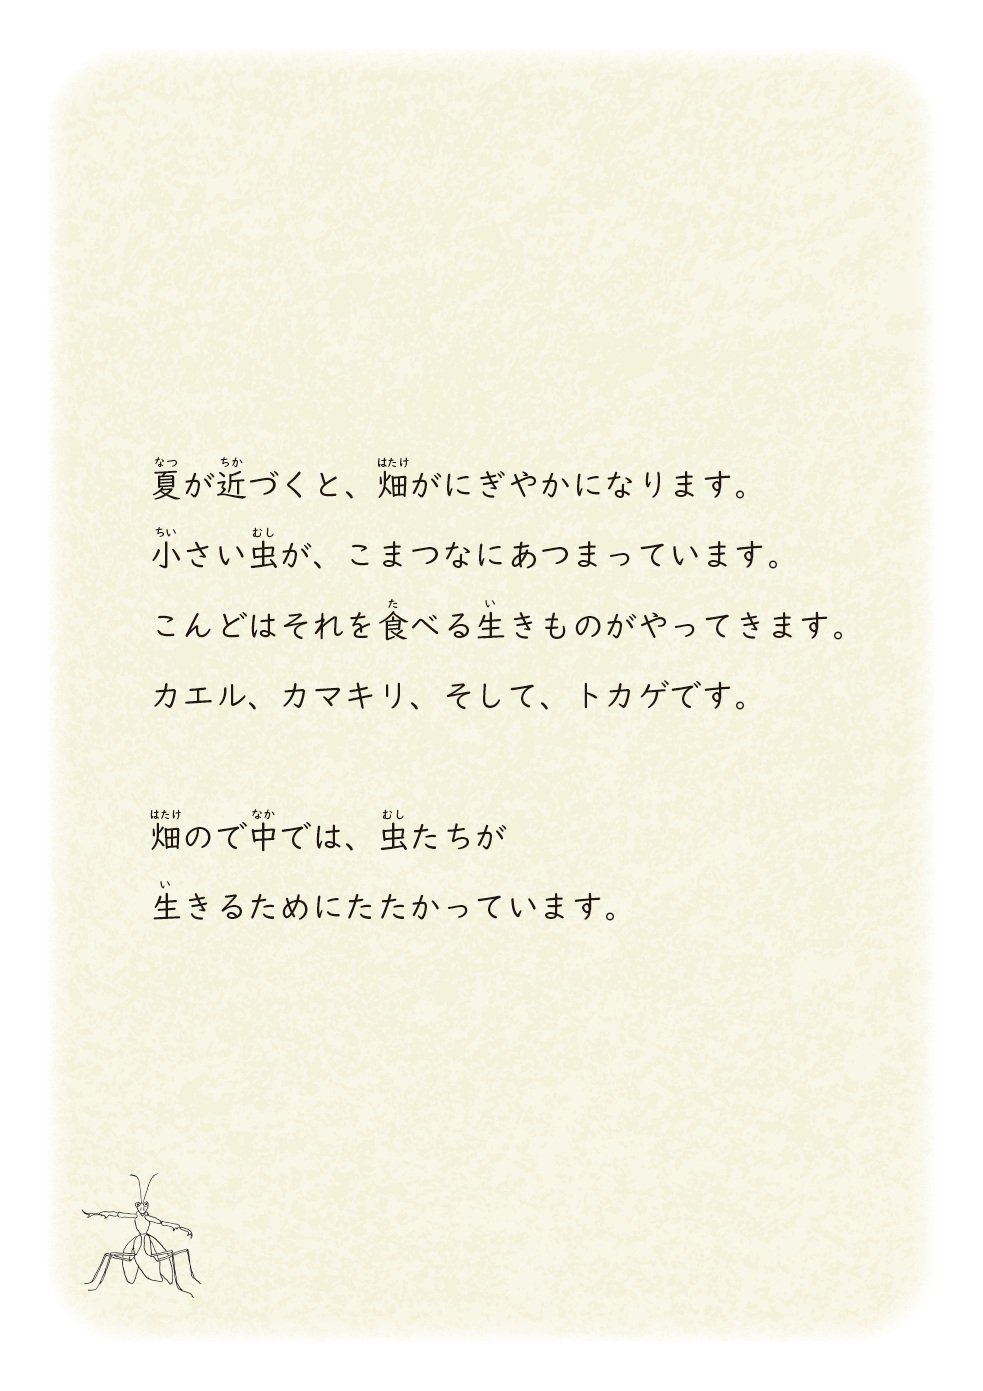 夏が近づくと、畑がにぎやかになります。
小さい虫が、こまつなにあつまっています。
こんどはそれを食べる生きものがやってきます。
カエル、カマキリ、そして、トカゲです。
畑ので中では、虫たちが
生きるためにたたかっています。